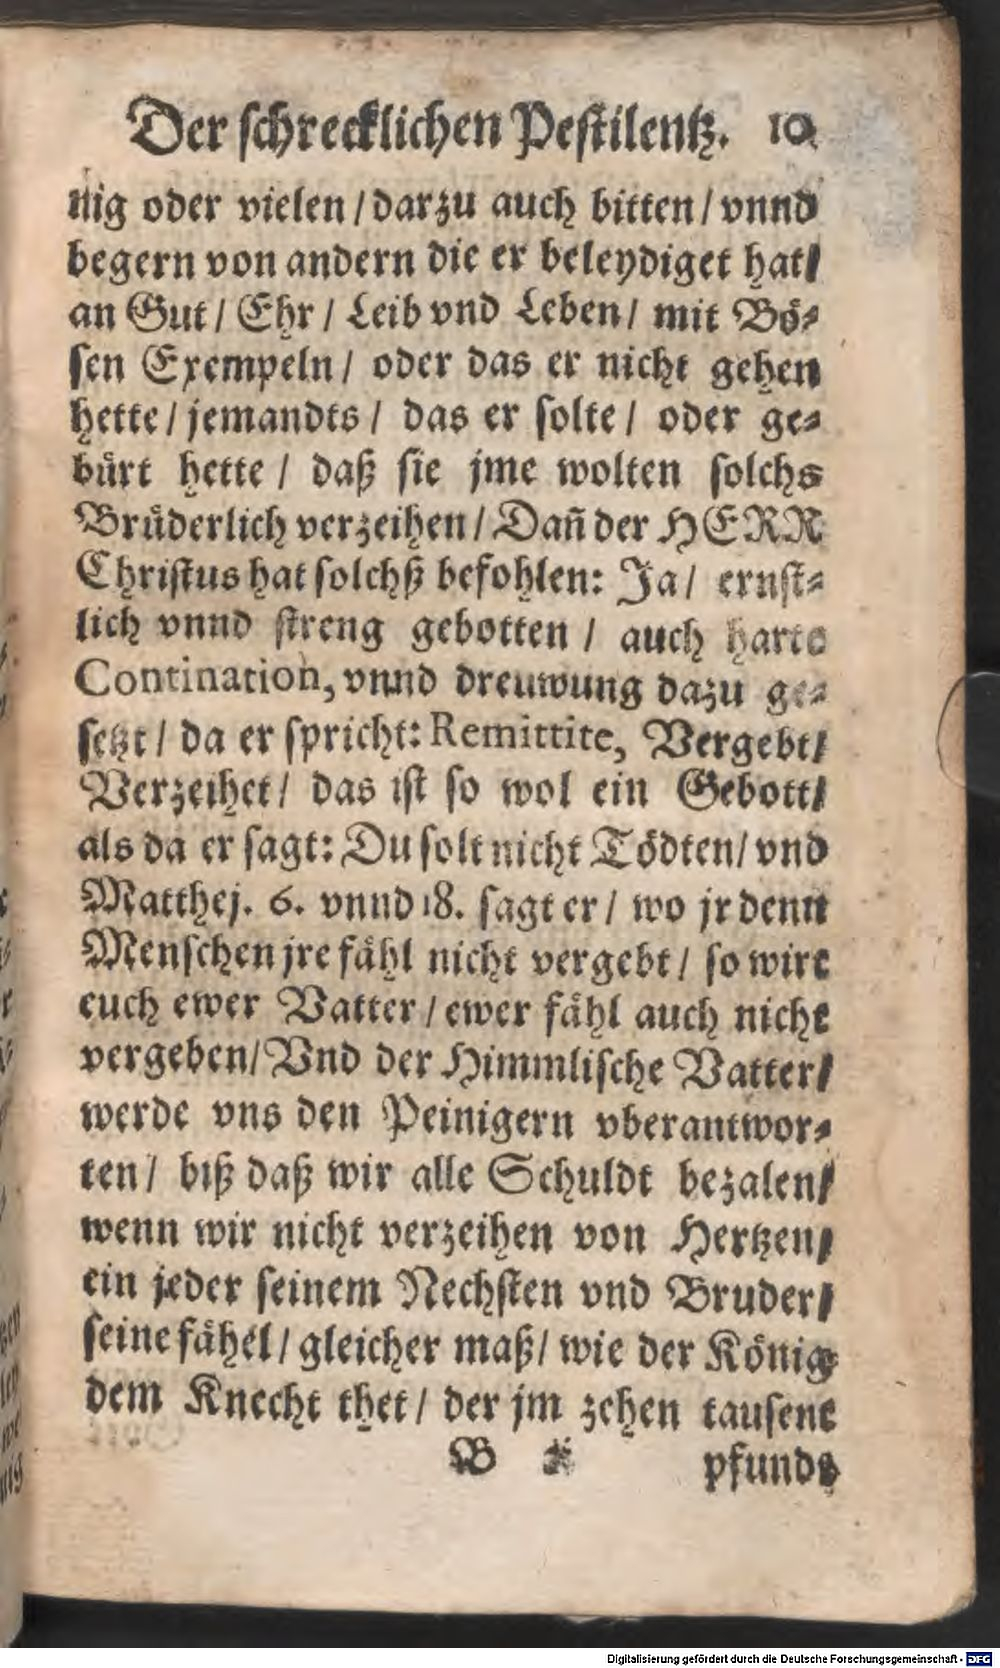 Der schrecklichen Pestilentz. 10
nig oder vielen / darzu auch bitten / vnnd
begern von andern die er beleydiget hat /
an Gut / Ehr / Leib vnd Leben / mit Bö-
sen Exempeln / oder das er nicht gehen
hette / jemandts / das er solte / oder ge-
bürt hette / daß sie jme wolten solchs
Brüderlich verzeihen / Dañ der HERR
Christus hat solchß befohlen: Ja / ernst-
lich vnnd streng gebotten / auch harte
Contination, vnnd dreuwung dazu ge-
setzt / da er spricht: Remittite, Vergebt /
Verzeihet / das ist so wol ein Gebott /
als da er sagt: Du solt nicht Tödten / vnd
Matthej. 6. vnnd 18. sagt er / wo jr denn
Menschen jre fähl nicht vergebt / so wirt
euch ewer Vatter / ewer fähl auch nicht
vergeben / Vnd der Himmlische Vatter /
werde vns den Peinigern vberantwor-
ten / biß daß wir alle Schuldt bezalen /
wenn wir nicht verzeihen von Hertzen /
ein jeder seinem Nechsten vnd Bruder /
seine fähel / gleicher maß / wie der König
dem Knecht thet / der jm zehen tausent
B pfunds
Digitalisierung gefördert durch die Deutsche Forschungsgemeinschaft - DFG